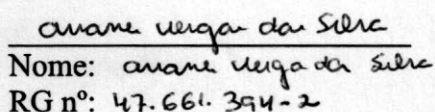 ariane veiga da Silva
Nome: ariane veiga da Silva
RG nº: 47.661.394-2